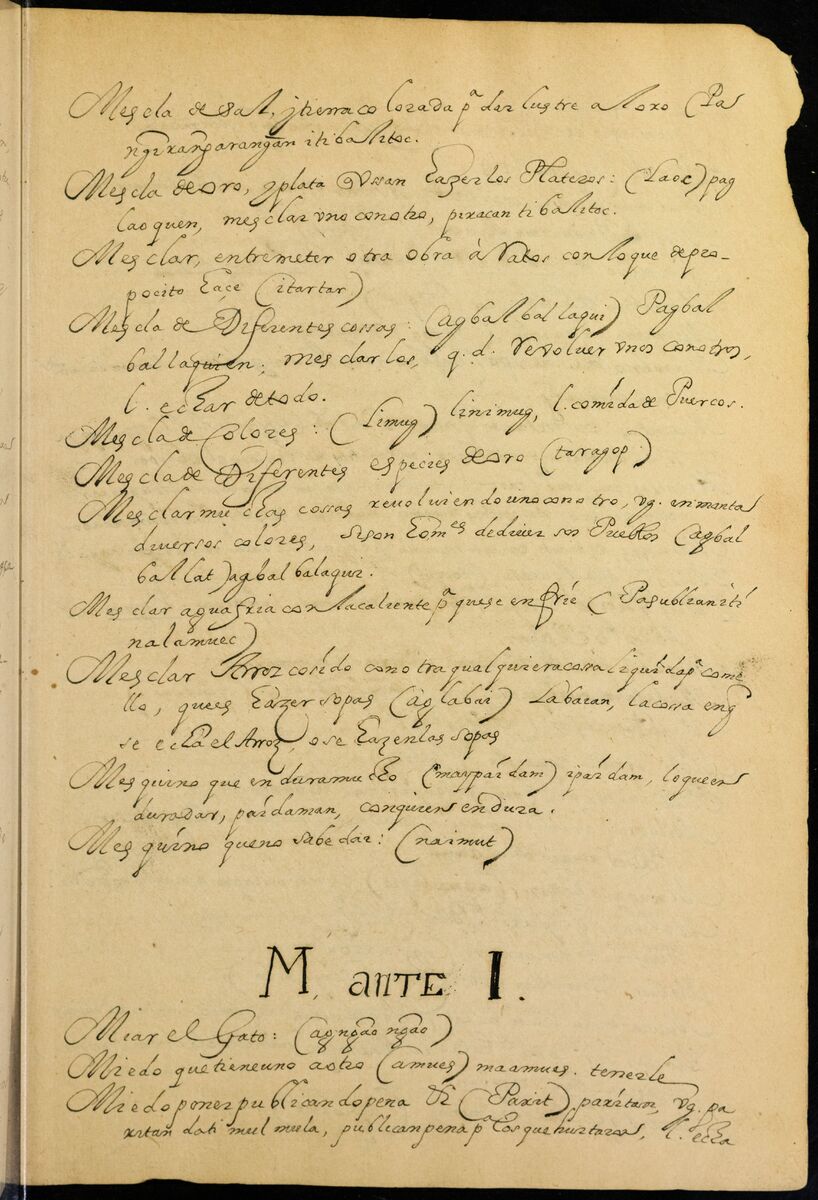 Mescla de sal, y tierra colorada pª dar lustre al oro (Pas
ngirangparangan iti balitoc.
Mescla de oro, y plata Vssan hazer los Plateros: (Laoc) pag
laoquen, mesclar vno con otro, piracan ti balitoc.
Mesclar, entremeter otra obra à Vatos con lo que depro-
pocito haçe (itartar)
Mescla de Diferentes cossas: (agbalballaqui) Pagbal
ballaquien, mesclarlos, q. d. Revoluer vnos con otros,
l. echar de todo.
Mescla de Colores: (Limug) linimug, l. comída de Puercos.
Mescla de Diferentes especies de oro (taragop.)
Mesclar muchas cossas revoluiendo uno con otro, vg. in manta
diuersos colores, si son homes. de diuersos Pueblos (agbal
ballat) agbalbalaqui.
Mesclar agua fria con la caliente pª que se enfríe (Pasublianití
nalamuec)
Mesclar Arroz cosído con otra qualquiera cosa liquída pª come
llo, que es hazer sopas (aglabai) Labaian, la cossa en q̃
se echa el Arroz, o se hazen las sopas
Mesquino que en dura mucho (maypárdam) ipárdam, lo que en
duradar, párdaman, con quien endura.
Mesquíno que no sabe dar: (naimut)
M, ante I.
Miar el Gato: (agngão ngão)
Miedo que tiene uno a otro (amues) maamues. tenerle
Miedo poner publicando pena &ª (Parit) parítan, vg. pa
ritan dati mulmula, publican pena pª los que hurtaren, l. echa